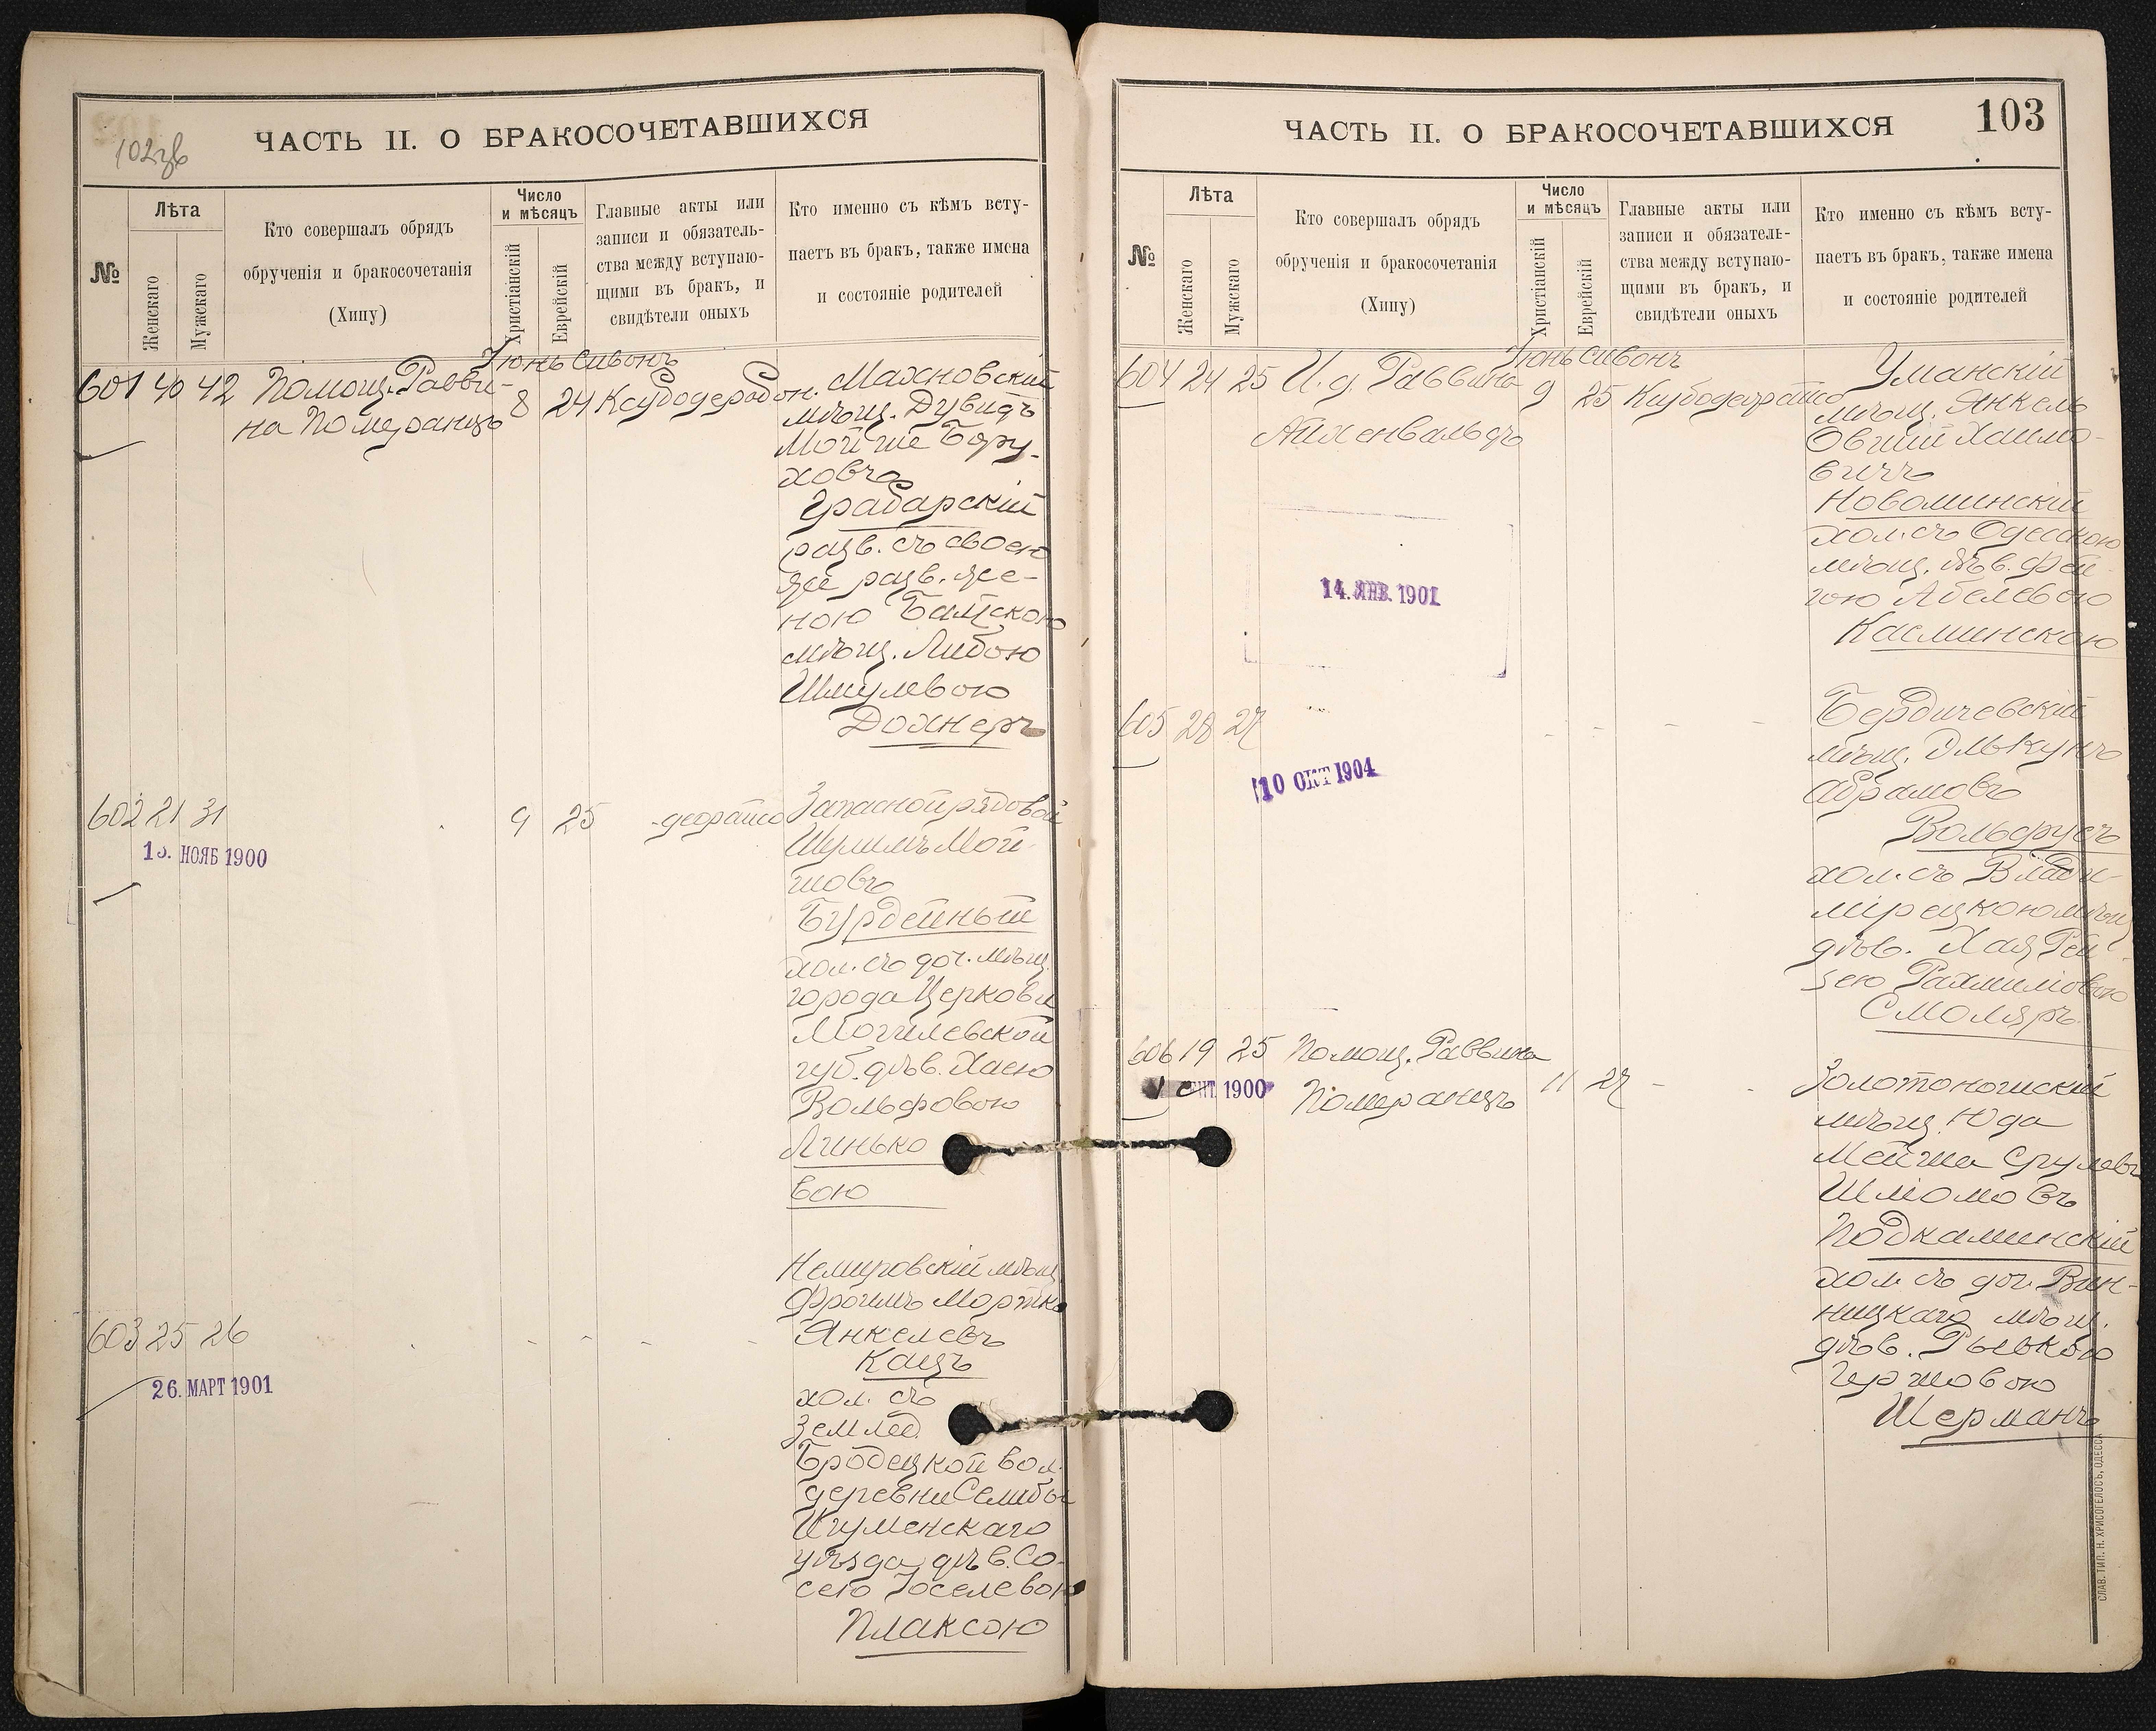 102 зв
ЧАСТЬ II. О БРАКОСОЧЕТАВШИХСЯ
№
Лѣта
Женскаго
Мужскаго
Кто совершалъ обрядъ
обрученія и бракосочетанія
(Хипу)
Число
и мѣсяцъ
Христіанскій
Еврейскій
Главные акты или
записи и обязатель-
ства между вступаю-
щими въ бракъ, и
свидѣтели оныхъ
Кто именно съ кѣмъ всту-
паетъ въ бракъ, также имена
и состояніе родителей
Іюнь Сивонъ
601 40 42 Помощ. Равви-
на Померанцъ
8 24
Махновскій
мѣщ. Дувидъ
Мойше Бору-
ховъ
Грабарскій
разв. съ своею
же разв. же-
ною Балтскою
мѣщ. Либою
Шмулевою
Дохнеръ
602 21 31
9 25
15. НОЯБ 1900
Запасной рядовой
Шулимъ Мой-
шовъ
Бурдейный
хол. съ доч. мѣщ.
города Церкови
Могилевской
губ. дѣв. Хаею
Вольфовою
Линько
вою
603 25 26
26. МАРТ 1901
Немировскій мѣщ
Фроимъ Мортко
Янкелевъ
Кацъ
хол. съ
землед.
Бродецкой вол.
деревни Селибы
Игуменскаго
уѣзда дѣв. Со-
сею Іоселевою
Плаксою
103
ЧАСТЬ II. О БРАКОСОЧЕТАВШИХСЯ
№
Лѣта
Женскаго
Мужскаго
Кто совершалъ обрядъ
обрученія и бракосочетанія
(Хипу)
Число
и мѣсяцъ
Христіанскій
Еврейскій
Главные акты или
записи и обязатель-
ства между вступаю-
щими въ бракъ, и
свидѣтели оныхъ
Кто именно съ кѣмъ всту-
паетъ въ бракъ, также имена
и состояніе родителей
Іюнь Сивонъ
604 24 25 И. д. Раввина
Айхенвальдъ
9 25
14. ЯНВ. 1901
Уманскій
мѣщ. Янкель
Овший Хаимо-
вичъ
Новоминскій
хол. съ Одесскою
мѣщ. дѣв. Фей-
гою Абелевою
Касминскою
605 28 27
10 ОКТ 1904
Бердичевскій
мѣщ. Элькунъ
Абрамовъ
Вольфрусъ
хол. съ Влади-
мірецкою мѣщ
дѣв. Хая Рей-
зею Рахмиловою
Смоляръ
606 19 25 Помощ. Раввина
Померанцъ
11 27
1900
Золотоношскій
мѣщ. Юда
Мойше Срулевъ
Шліомовъ
Подкаминскій
хол. съ доч. Вин-
ницкаго мѣщ.
дѣв. Рывкою
Гершовою
Шерманъ
СЛАВ. ТИП. Н. ХРИСОГЕЛОСЪ, ОДЕССА